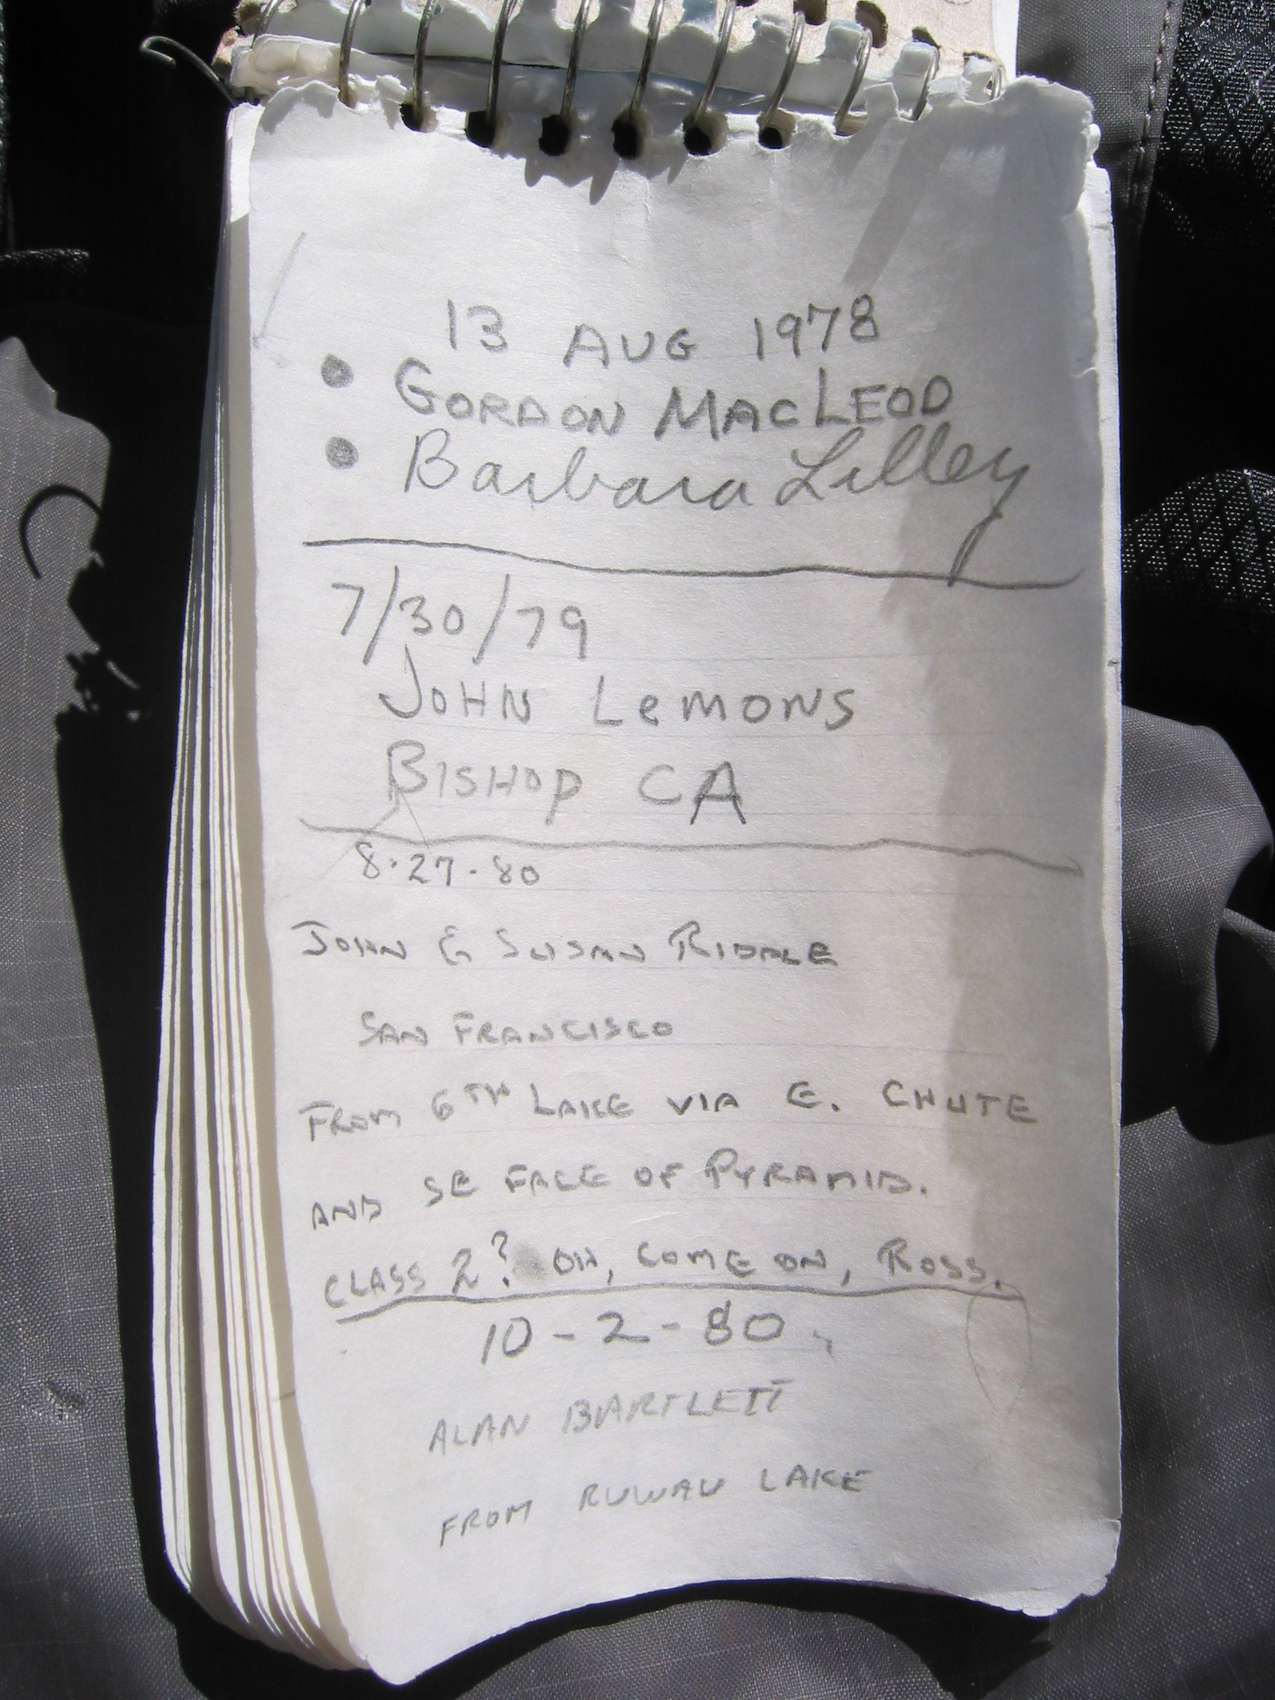 13 AUG 1978
• GORDON MACLEOD
• Barbara Lilley
7/30/79
JOHN LeMONS
BISHOP CA
8·27·80
JOHN & SUSAN RIDDLE
SAN FRANCISCO
FROM 6TH LAKE VIA E. CHUTE
AND SE FACE OF PYRAMID.
CLASS 2? OH, COME ON, ROSS.
10-2-80
ALAN BARTLETT
FROM RUWAU LAKE